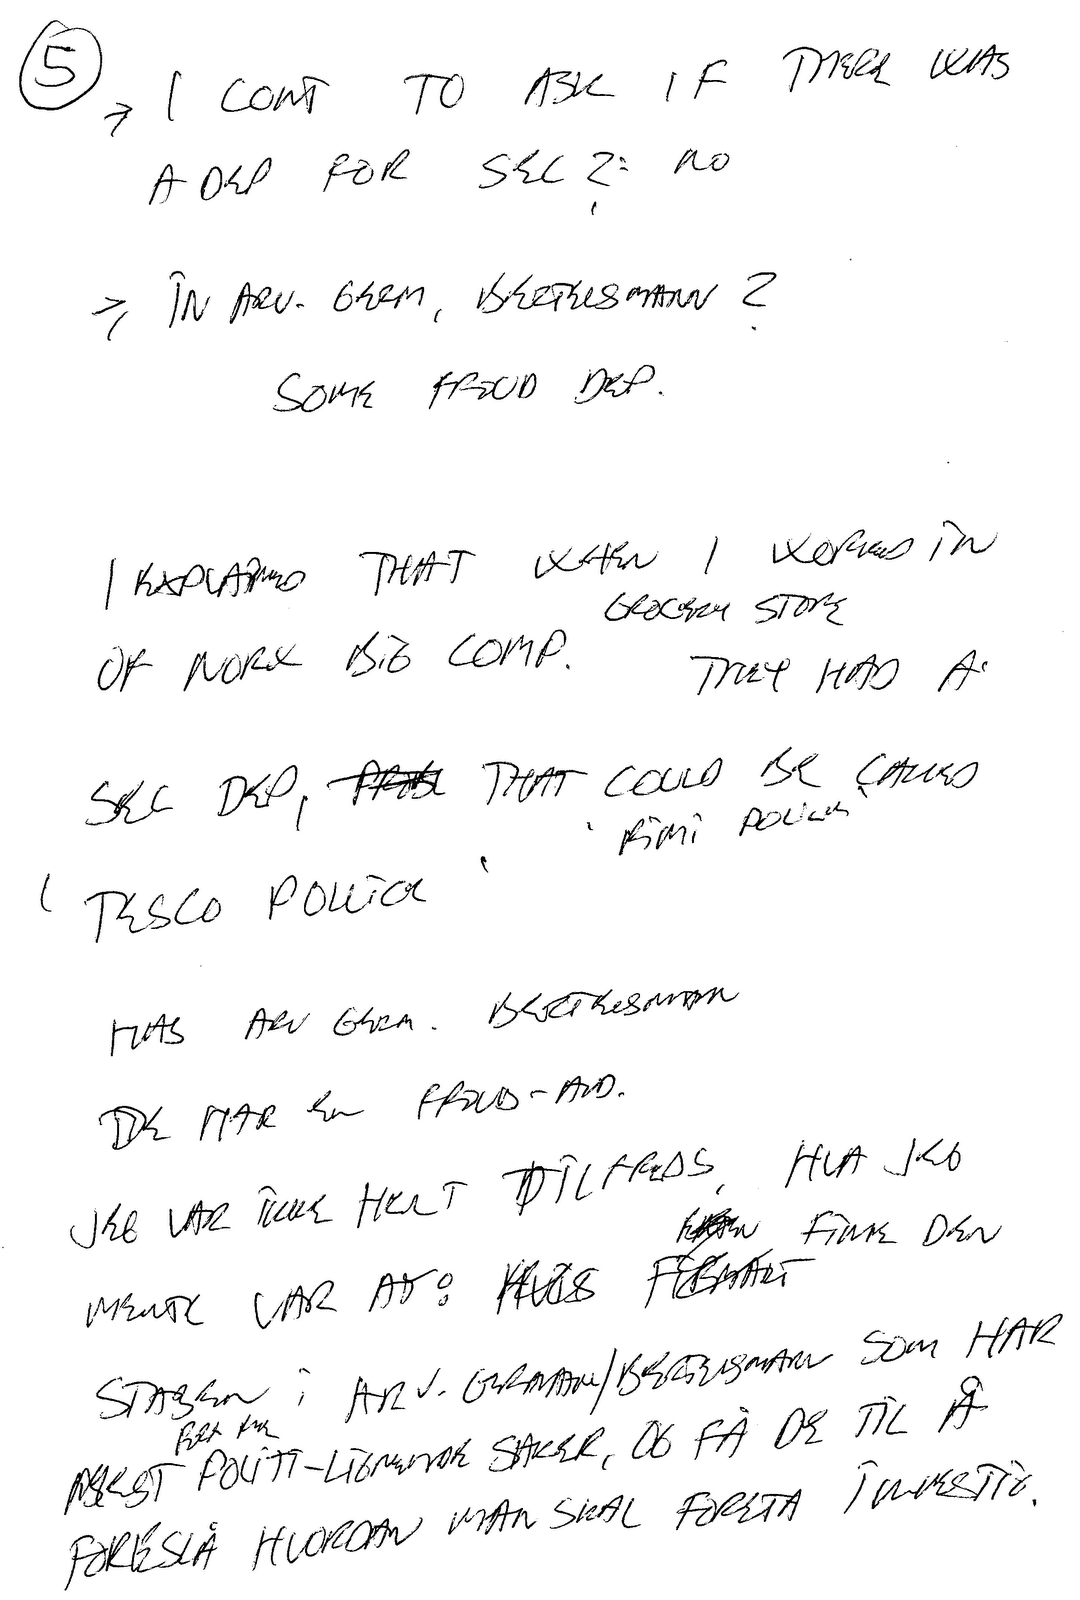 5
→ I CONT TO ASK IF THERE WAS
A DEP FOR SEC?: NO
→ IN ARV. GERM, BERTELSMANN?
SOME FRAUD DEP.
I EXPLAINED THAT WHEN I WORKED IN
GROCERY STORE
OF NORW BIG COMP. THEY HAD A
SEC DEP, THAT COULD BE CALLED
'RIMI POLICE'
'TESCO POLICE'
HAS ARV GERM. BERTELSMAN
DE HAR EN FRAUD-AVD.
JEG VAR IKKE HELT TILFREDS, HVA JEG
FINNE DEN
MENTE VAR AT:
STABEN I ARV. GERMAN/BERTELSMANN SOM HAR
MEST POLITI-LIGNENDE SAKER, OG FÅ DE TIL Å
FORESLÅ HVORDAN MAN SKAL FORETA INVESTIG.